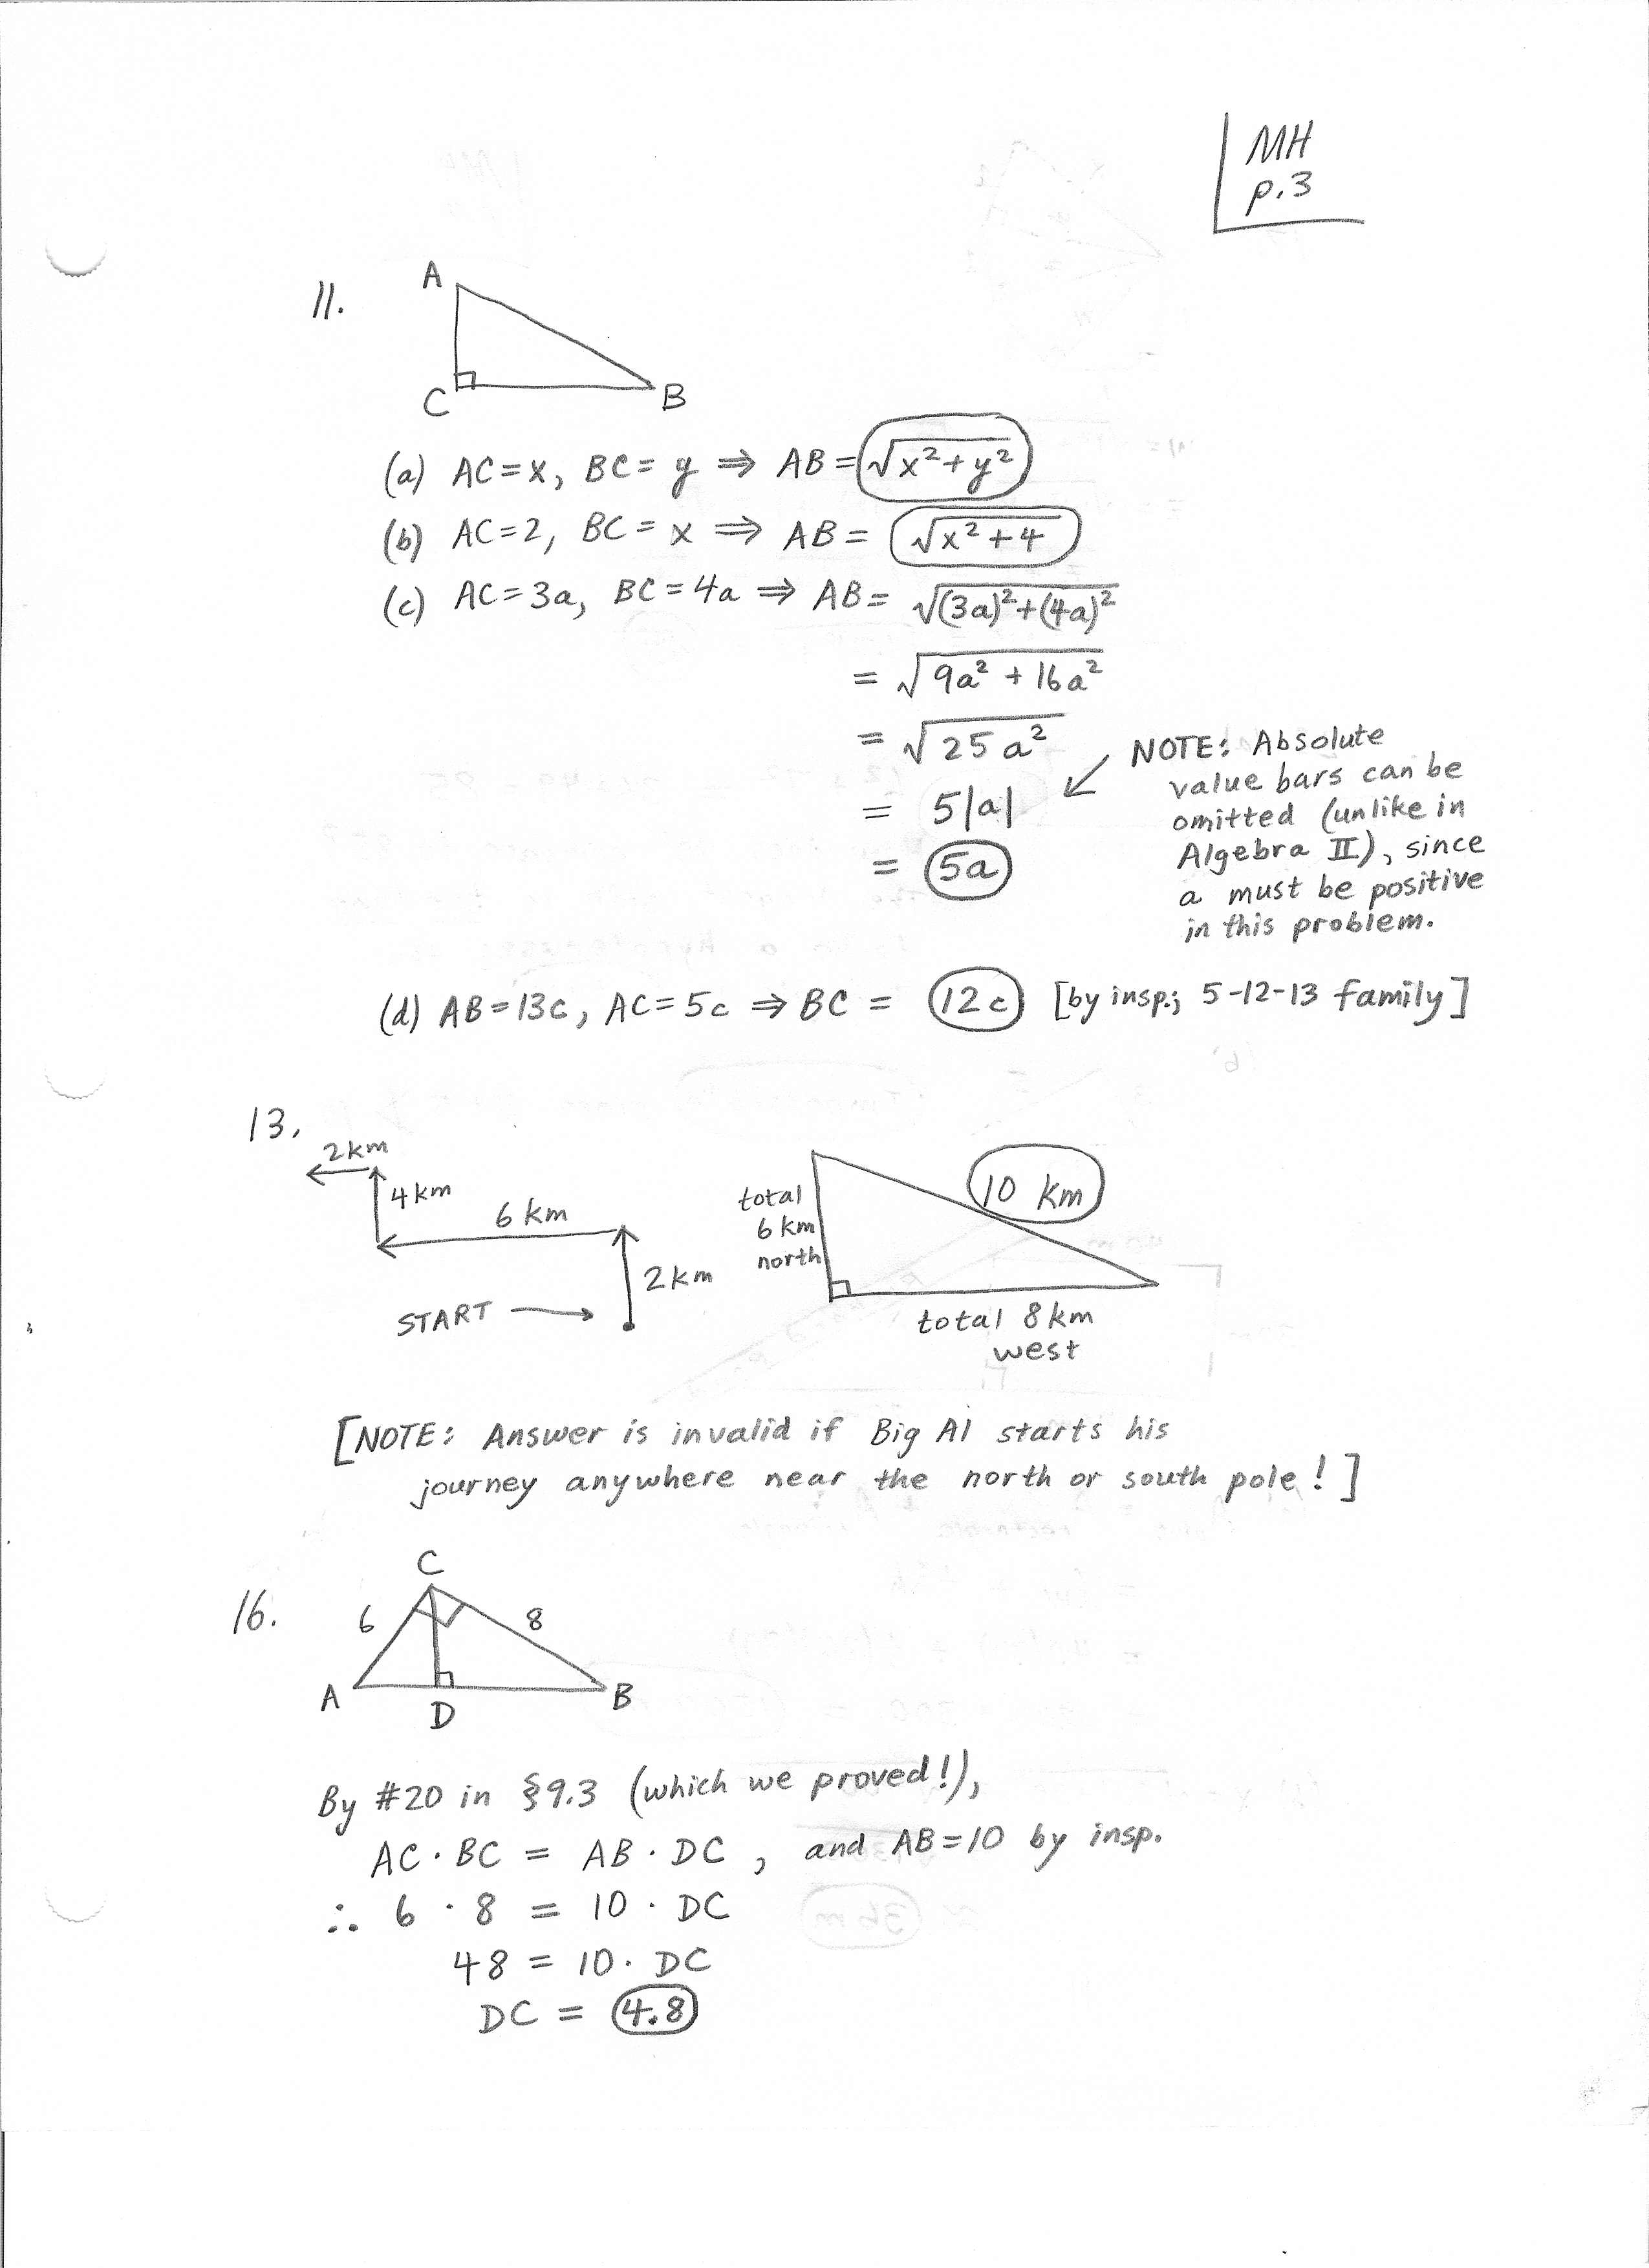 MH
p.3
11.
A
C
B
(a) AC=x, BC=y ⇒ AB=√(x²+y²)
(b) AC=2, BC=x ⇒ AB=√(x²+4)
(c) AC=3a, BC=4a ⇒ AB=√((3a)²+(4a)²)
= √(9a²+16a²)
= √(25a²)
= 5|a|
= 5a
NOTE: Absolute
value bars can be
omitted (unlike in
Algebra II), since
a must be positive
in this problem.
(d) AB=13c, AC=5c ⇒ BC = 12c [by insp.; 5-12-13 family]
13.
2km
4km
6 km
2km
START →
total
6 km
north
10 km
total 8km
west
[NOTE: Answer is invalid if Big Al starts his
journey anywhere near the north or south pole!]
16.
C
6
8
A
D
B
By #20 in §9.3 (which we proved!),
AC·BC = AB·DC, and AB=10 by insp.
∴ 6·8 = 10·DC
48 = 10·DC
DC = 4.8